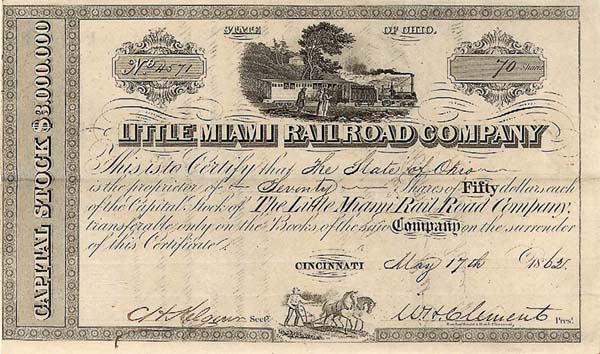 CAPITAL STOCK $3,000,000
STATE OF OHIO.
No. 4571
70 Shares
LITTLE MIAMI RAIL ROAD COMPANY
This is to Certify that The State of Ohio
is the proprietor of Seventy Shares of Fifty dollars each
of the Capital Stock of The Little Miami Rail Road Company;
transferable only on the Books of the said Company on the surrender
of this Certificate.
CINCINNATI May 17th 1862.
Secy.
W H Clement Prest.